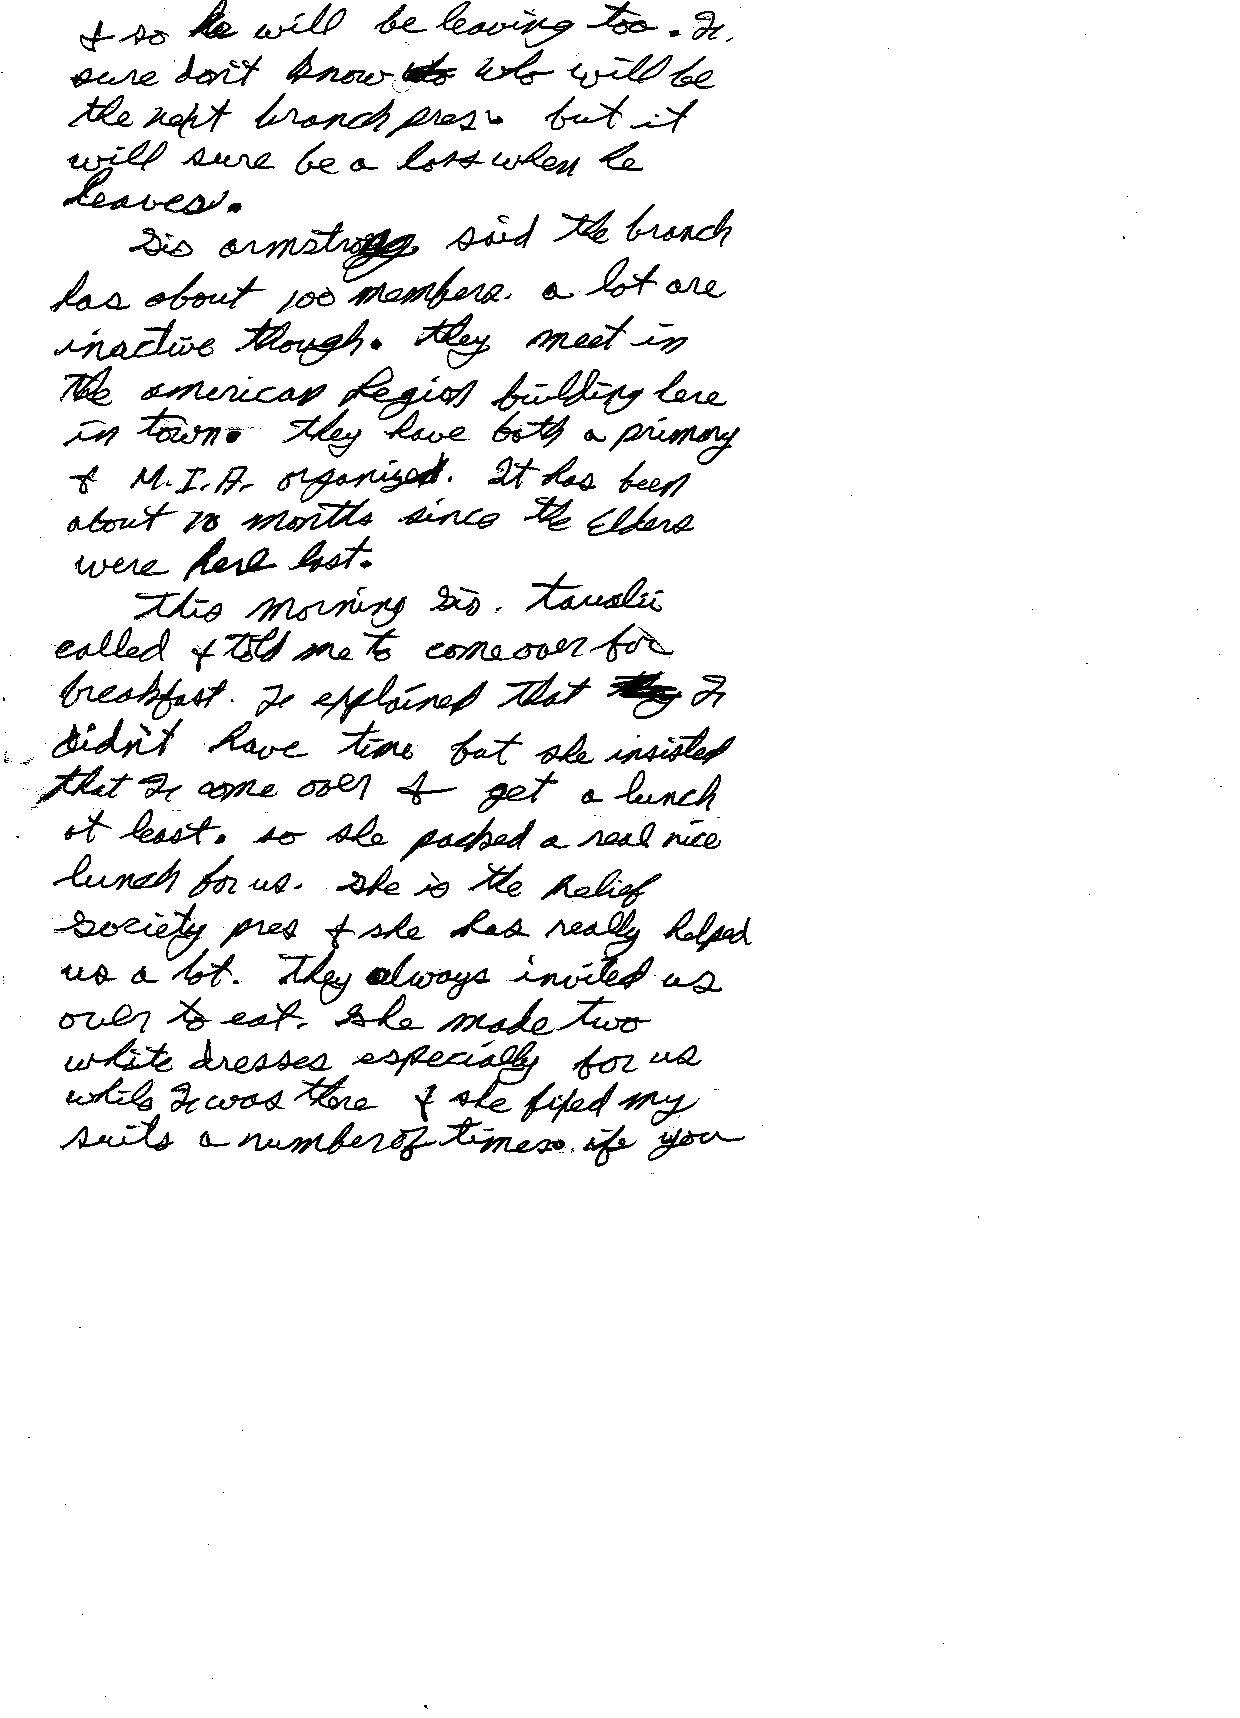 & so he will be leaving too. I
sure don't know who will be
the next branch pres. but it
will sure be a loss when he
leaves.
Sis armstrong said the branch
has about 100 members. a lot are
inactive though. they meet in
the american Legion building here
in town. they have both a primary
& M.I.A. organized. It has been
about 10 months since the Elders
were here last.
This morning Sis. Tavalii
called & told me to come over for
breakfast. I explained that I
didn't have time but she insisted
that I come over & get a lunch
at least. so she packed a real nice
lunch for us. She is the Relief
Society pres & she has really helped
us a lot. They always invited us
over to eat. She made two
white dresses especially for us
while I was there & she fixed my
suits a number of times. if you